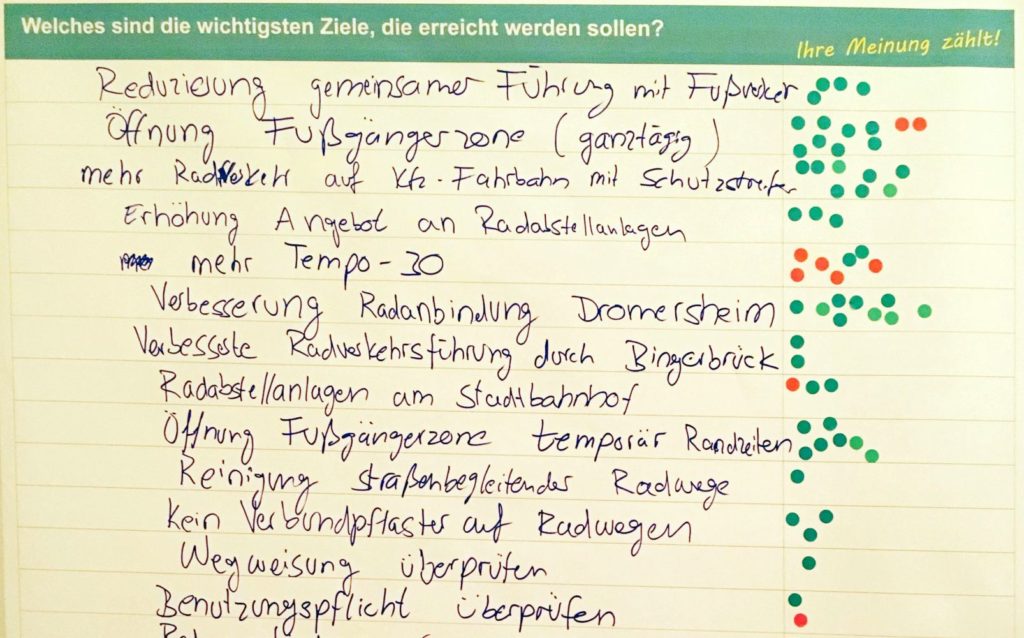 Welches sind die wichtigsten Ziele, die erreicht werden sollen?
Ihre Meinung zählt!
Reduzierung gemeinsamer Führung mit Fußverker
Öffnung Fußgängerzone (ganztägig)
mehr Radverkehr auf Kfz-Fahrbahn mit Schutzstreifen
Erhöhung Angebot an Radabstellanlagen
mehr Tempo-30
Verbesserung Radanbindung Dromersheim
Verbesserte Radverkehrsführung durch Bingerbrück
Radabstellanlagen am Stadtbahnhof
Öffnung Fußgängerzone temporär Randzeiten
Reinigung straßenbegleitender Radwege
Kein Verbundpflaster auf Radwegen
Wegweisung überprüfen
Benutzungspflicht überprüfen